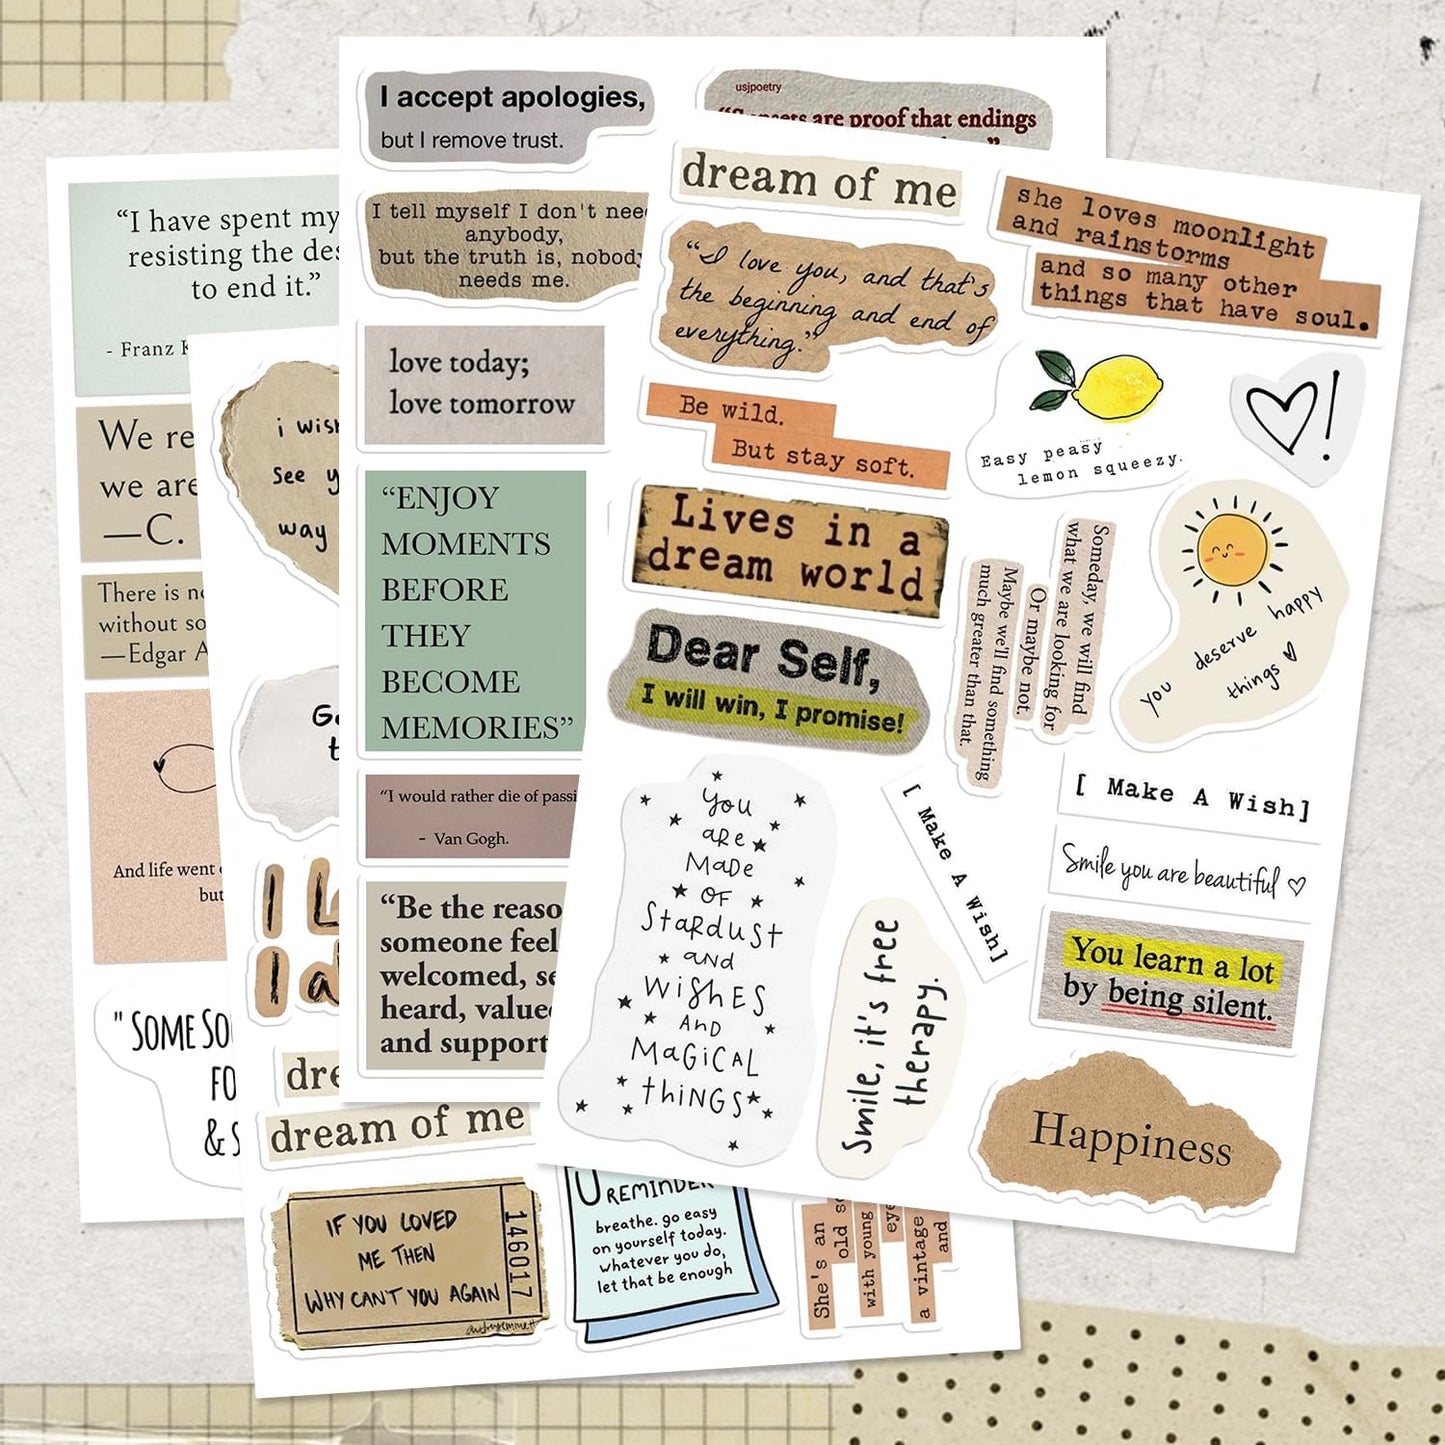 I accept apologies,
but I remove trust.
usjpoetry
are proof that endings
I tell myself I don't
anybody,
but the truth is,
needs me.
love today;
love tomorrow
“ENJOY
MOMENTS
BEFORE
THEY
BECOME
MEMORIES”
“I would rather die of
- Van Gogh.
“Be the
someone
welcomed,
heard,
and
“I have spent my
resisting the
to end it.”
- Franz
We
we are
—C.
There is
without
—Edgar
And life went
"SOME
&
i
See
way
I
I
dream of me
IF YOU LOVED
ME THEN
WHY CAN'T YOU AGAIN
146017
REMINDER
breathe. go easy
on yourself today.
whatever you do,
let that be enough
She's an
old
with young
a vintage
and
dream of me
“I love you, and that's
the beginning and end of
everything.”
she loves moonlight
and rainstorms
and so many other
things that have soul.
Be wild.
But stay soft.
Easy peasy
lemon squeezy.
!
Lives in a
dream world
Dear Self,
I will win, I promise!
Someday, we will find
what we are looking for
Or maybe not.
Maybe we'll find something
much greater than that.
you deserve happy
things
[ Make A Wish]
[ Make A Wish]
Smile you are beautiful
You learn a lot
by being silent.
You
are
Made
of
Stardust
and
Wishes
And
Magical
things
Smile, it's free
therapy.
Happiness